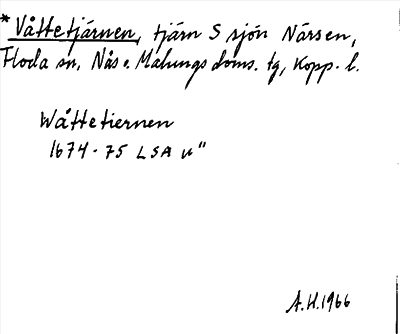 * Våttetjärnen, tjärn S sjön Närsen,
Floda sn, Nås o. Malungs doms. tg, Kopp. l.
Wåttetiernen
1674-75 LSA u"
A.H. 1966